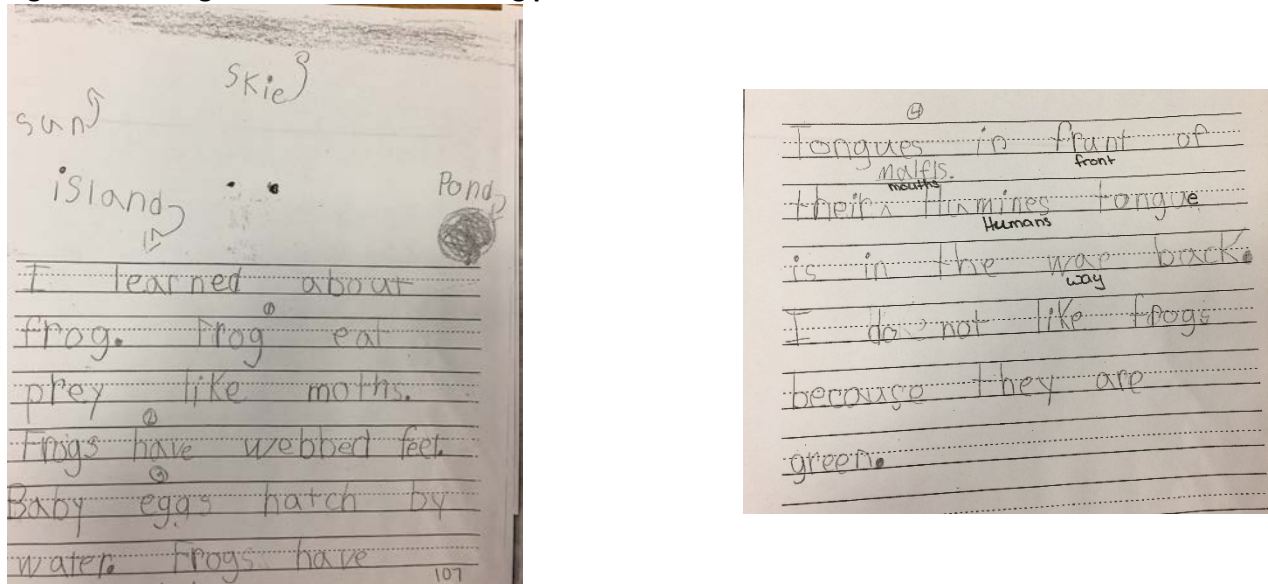 skie
sun
island
Pond
I learned about
①
frog. Frog eat
prey like moths.
②
Frogs have webbed feet.
③
Baby eggs hatch by
water. Frogs have
107
④
Tongues in frunt of
front
malfls.
mouths
their ^ Huxmines tongue
Humans
is in the wae back.
way
I do not like frogs
because they are
green.